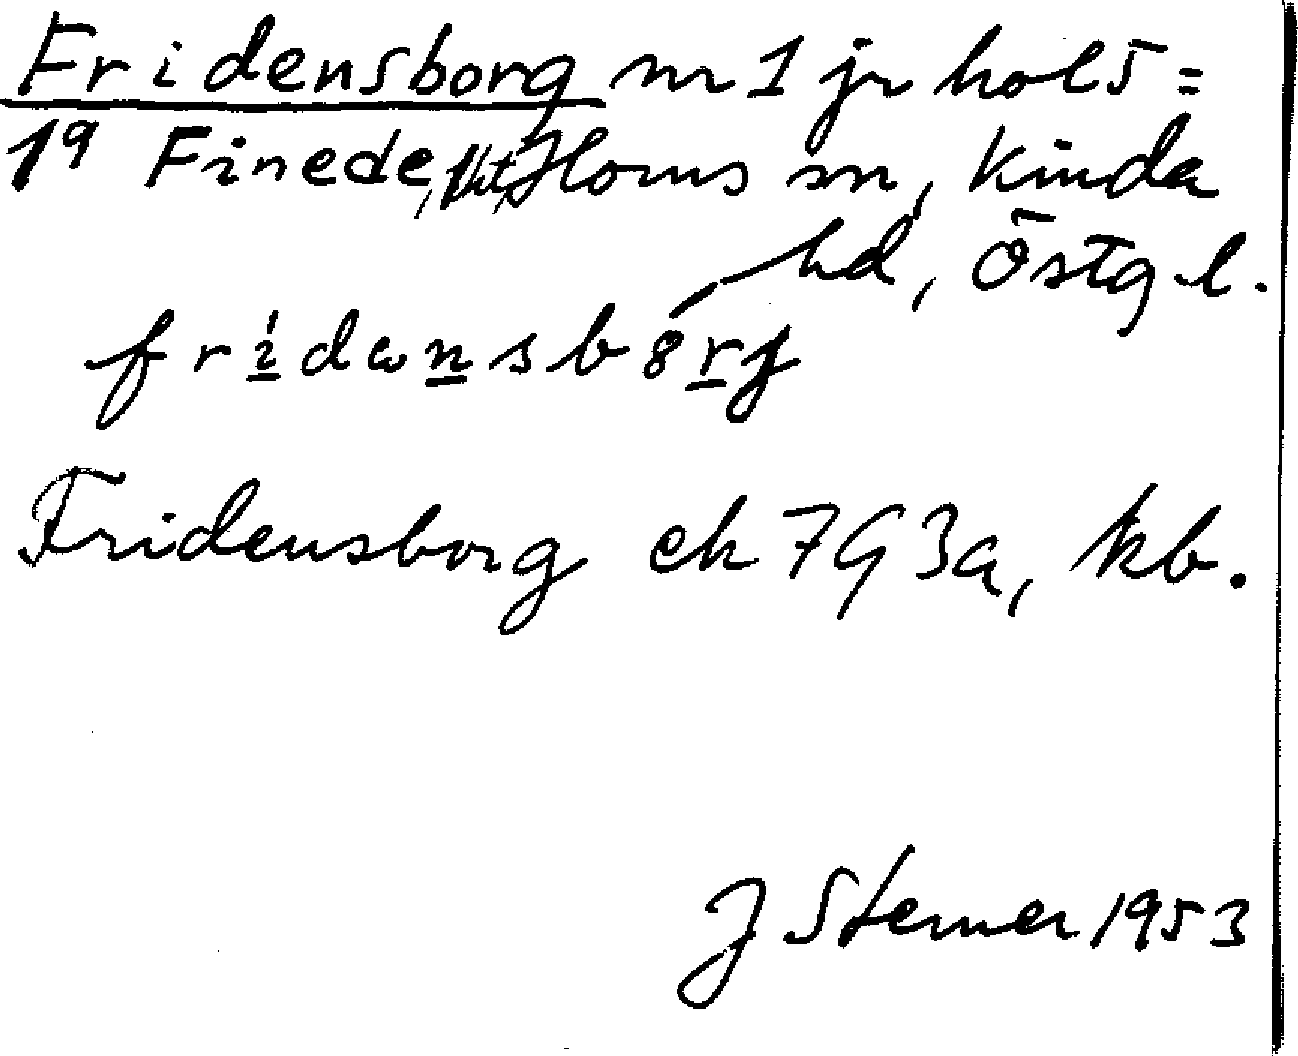 Fridensborg nr 1 jr hol 5 =
19 Finede, Horns sn, Kinda
hd, Östg l.
fridansbörj
Fridensborg ek 7 G 3a, kb.
J Sterner 1953